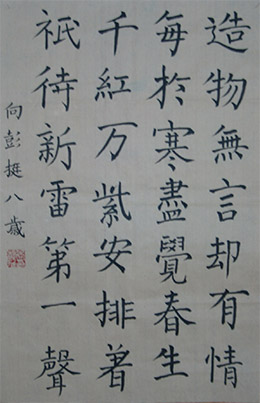 造物無言却有情
每於寒盡覺春生
千紅万紫安排着
祇待新雷第一聲
向彭挺八歲